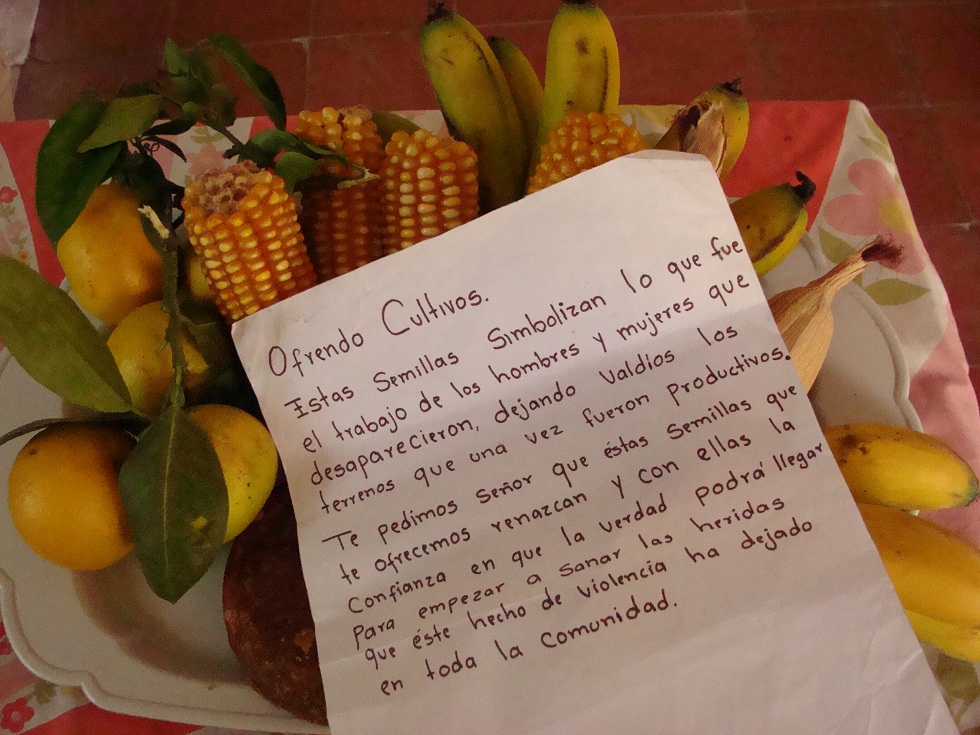 Ofrendo Cultivos.
Estas Semillas Simbolizan lo que fue
el trabajo de los hombres y mujeres que
desaparecieron, dejando valdíos los
terrenos que una vez fueron productivos.
Te pedimos Señor que éstas Semillas que
te ofrecemos renazcan y con ellas la
Confianza en que la verdad podrá llegar
para empezar a sanar las heridas
que éste hecho de violencia ha dejado
en toda la comunidad.